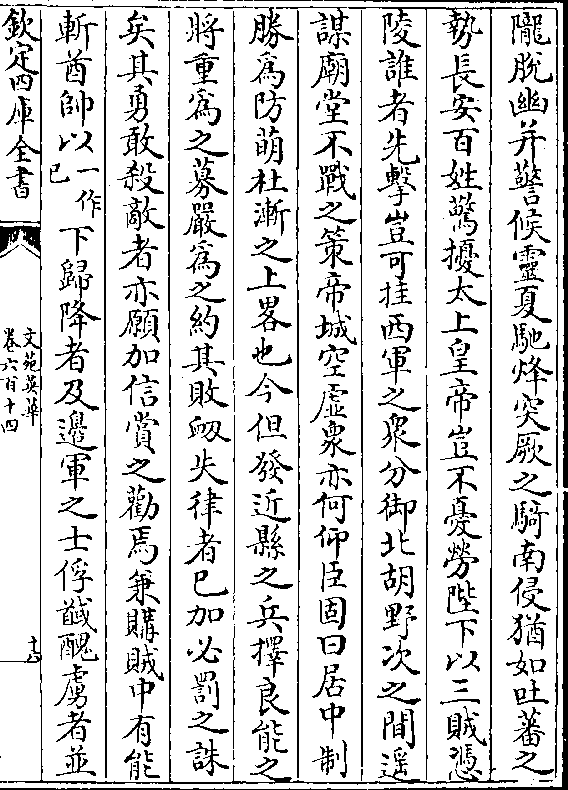 隴脫幽并警候靈夏馳烽突厥之騎南侵猶如吐蕃之
勢長安百姓驚擾太上皇帝豈不憂勞陛下以三賊憑
陵誰者先擊豈可挂西軍之衆分御北胡野次之間遥
謀廟堂不戰之策帝城空虛衆亦何仰臣固曰居中制
勝為防萌杜漸之上畧也今但發近縣之兵擇良能之
將重為之募嚴為之約其敗衂失律者已加必罰之誅
矣其勇敢殺敵者亦願加信賞之勸焉兼購賊中有能
斬酋帥以一作已下歸降者及邊軍之士俘馘醜虜者並
欽定四庫全書
文苑英華
卷六百十四
十二